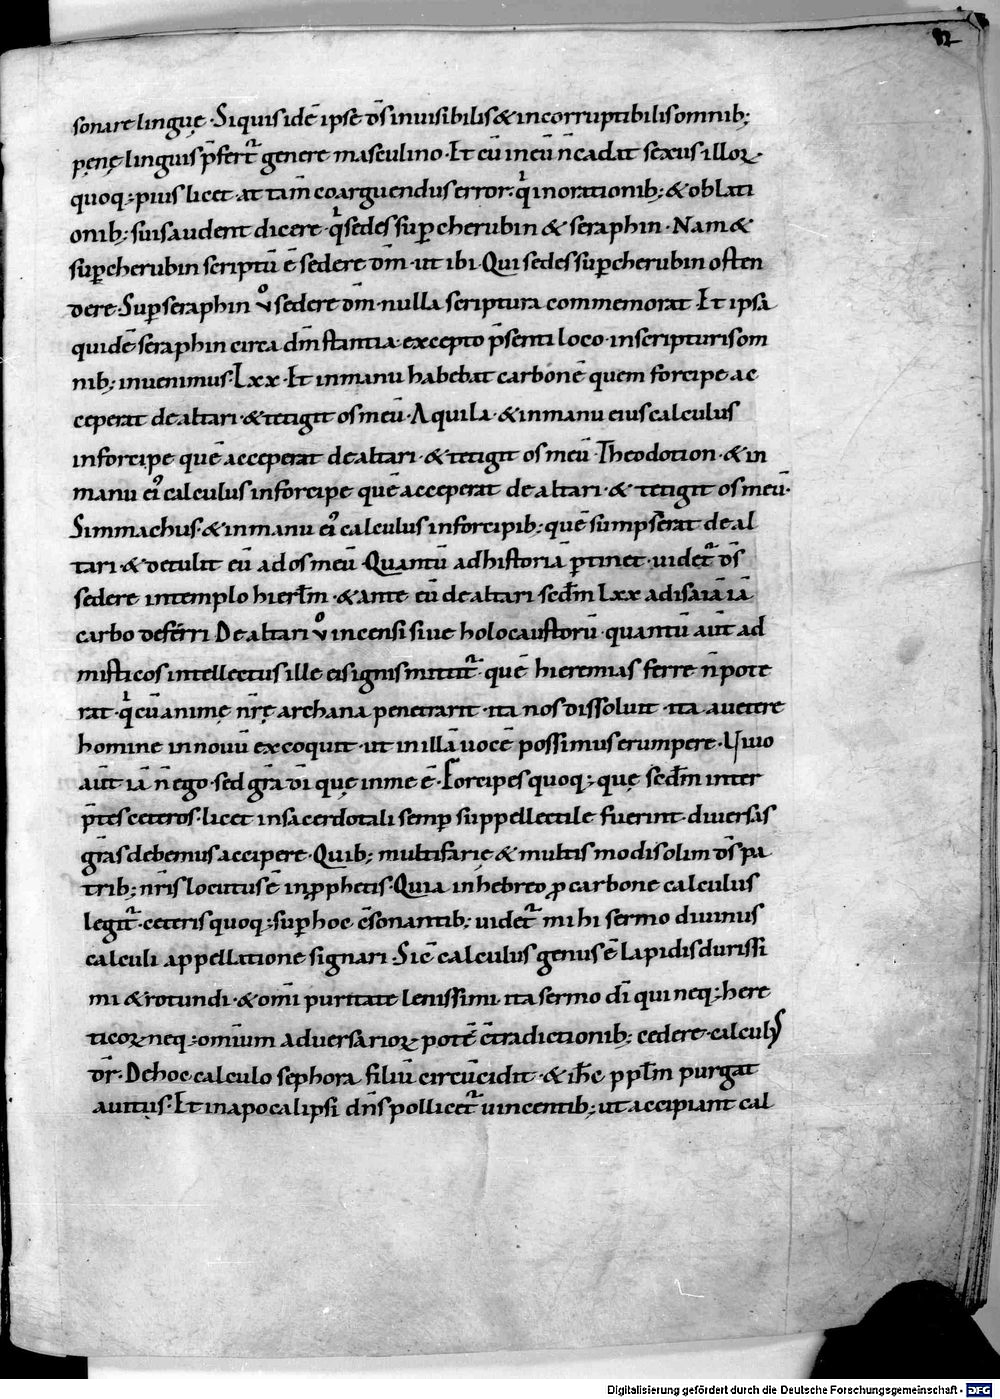 82
sonare linguę. Siquisidē ipse d̄s inuisibilis & incorruptibilis omnib;
pęnę linguis p̄fert᷑ genere masculino. Et cū in eū n̄ cadat sexus illoꝝ
quoq; pius licet at tam̄ coarguendus error. qͥ in orationib; & oblati
onib; suis audent dicere. qͥ sedes sup̱ cherubin & seraphin. Nam &
sup̱ cherubin scriptū ē sedere dm̄. ut ibi. Qui sedes sup̱ cherubin osten
dere. Sup̱ seraphin vͦ sedere dm̄. nulla scriptura commemorat. Et ipsa
quidē seraphin circa dm̄ stantia excepto p̄senti loco. in scripturis om
nib; inuenimus. Lxx. Et in manu habebat carbonē quem forcipe ac
ceperat de altari. & tetigit os meū. Aquila. & in manu eius calculus
in forcipe quē acceperat de altari. & tetigit os meū. Theodotion. & in
manu ei᷒ calculus in forcipe quē acceperat de altari. & tetigit os meū.
Simmachus. & in manu ei᷒ calculus in forcipib; quē sumpserat de al
tari. & detulit eū ad os meū. Quantū ad historiā p̱tinet. uidet᷑ d̄s
sedere in templo hierłm. & ante eū de altari sedm̄ Lxx ad isaiā iā
carbo deferri. De altari vͦ incensi siue holocaustorū. quantū aūt ad
misticos intellectus ille ei signis mittit᷑. quē hieremias ferre n̄ pote
rat. qͥ cū animę nr̄ę archana penetrarit. ita nos dissoluit. ita a uetere
homine in nouū excoquit. ut in illā uocē possimus erumpere. Uiuo
aūt iā n̄ ego. sed gr̄a di̅ quę in me ē. Forcipes quoq; quę sedm̄ inter
p̄tes ceteros. licet in sacerdotali semp̱ suppellectile fuerint. diuersas
gr̄as debemus accipere. Quib; multifarię & multis modis olim d̄s pa
trib; nr̄is locutus ē in ꝓphetis. Quia in hebreo ꝓ carbone calculus
legit᷑. ceteris quoq; sup̱ hoc c̄sonantib; uidet᷑ mihi sermo diuinus
calculi appellatione signari. Sic̄ calculus genus ē lapidis durissi
mi & rotundi. & om̄i puritate lenissimi. ita sermo di̅ qui neq; here
ticoꝝ neq; om̄ium aduersarioꝝ potē c̄tradictionib; cedere. calculus
dr̄. De hoc calculo sephora filiū circūcidit. & ih̄c pplm̄ purgat
a uitiis. Et in apocalipsi dn̄s pollicet᷑ uincentib; ut accipiant cal
Digitalisierung gefördert durch die Deutsche Forschungsgemeinschaft - DFG